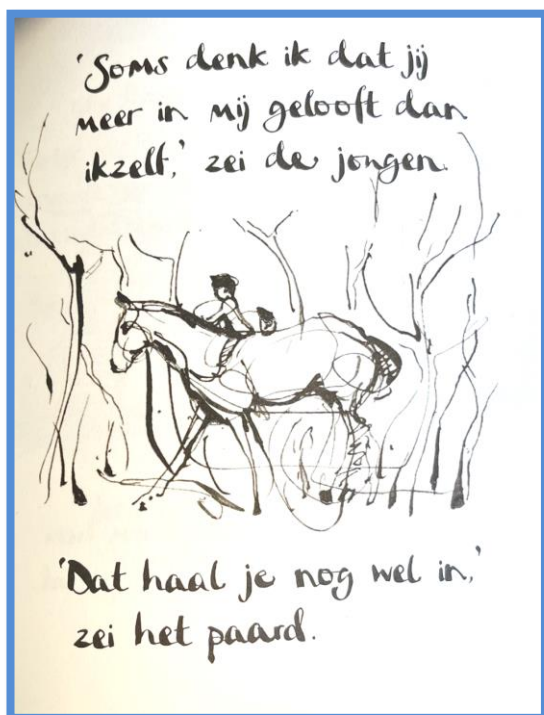 'Soms denk ik dat jij
meer in mij gelooft dan
ikzelf,' zei de jongen.
'Dat haal je nog wel in,'
zei het paard.